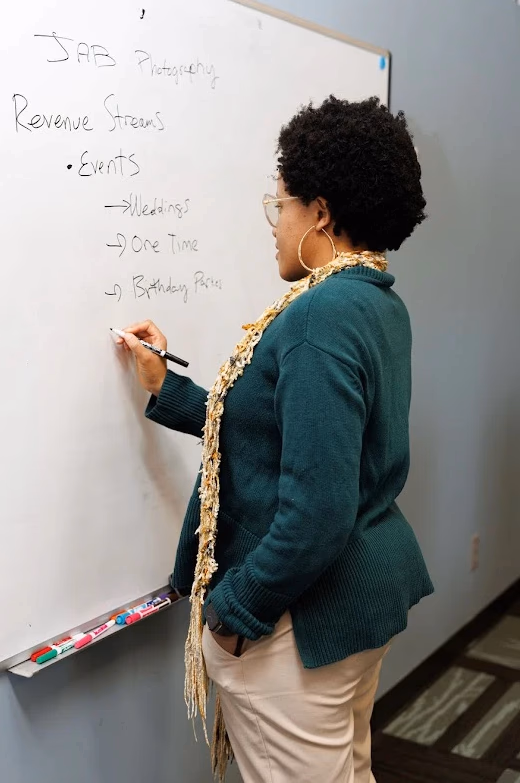 JAB Photography
Revenue Streams
• Events
→ Weddings
→ One Time
→ Birthday Parties